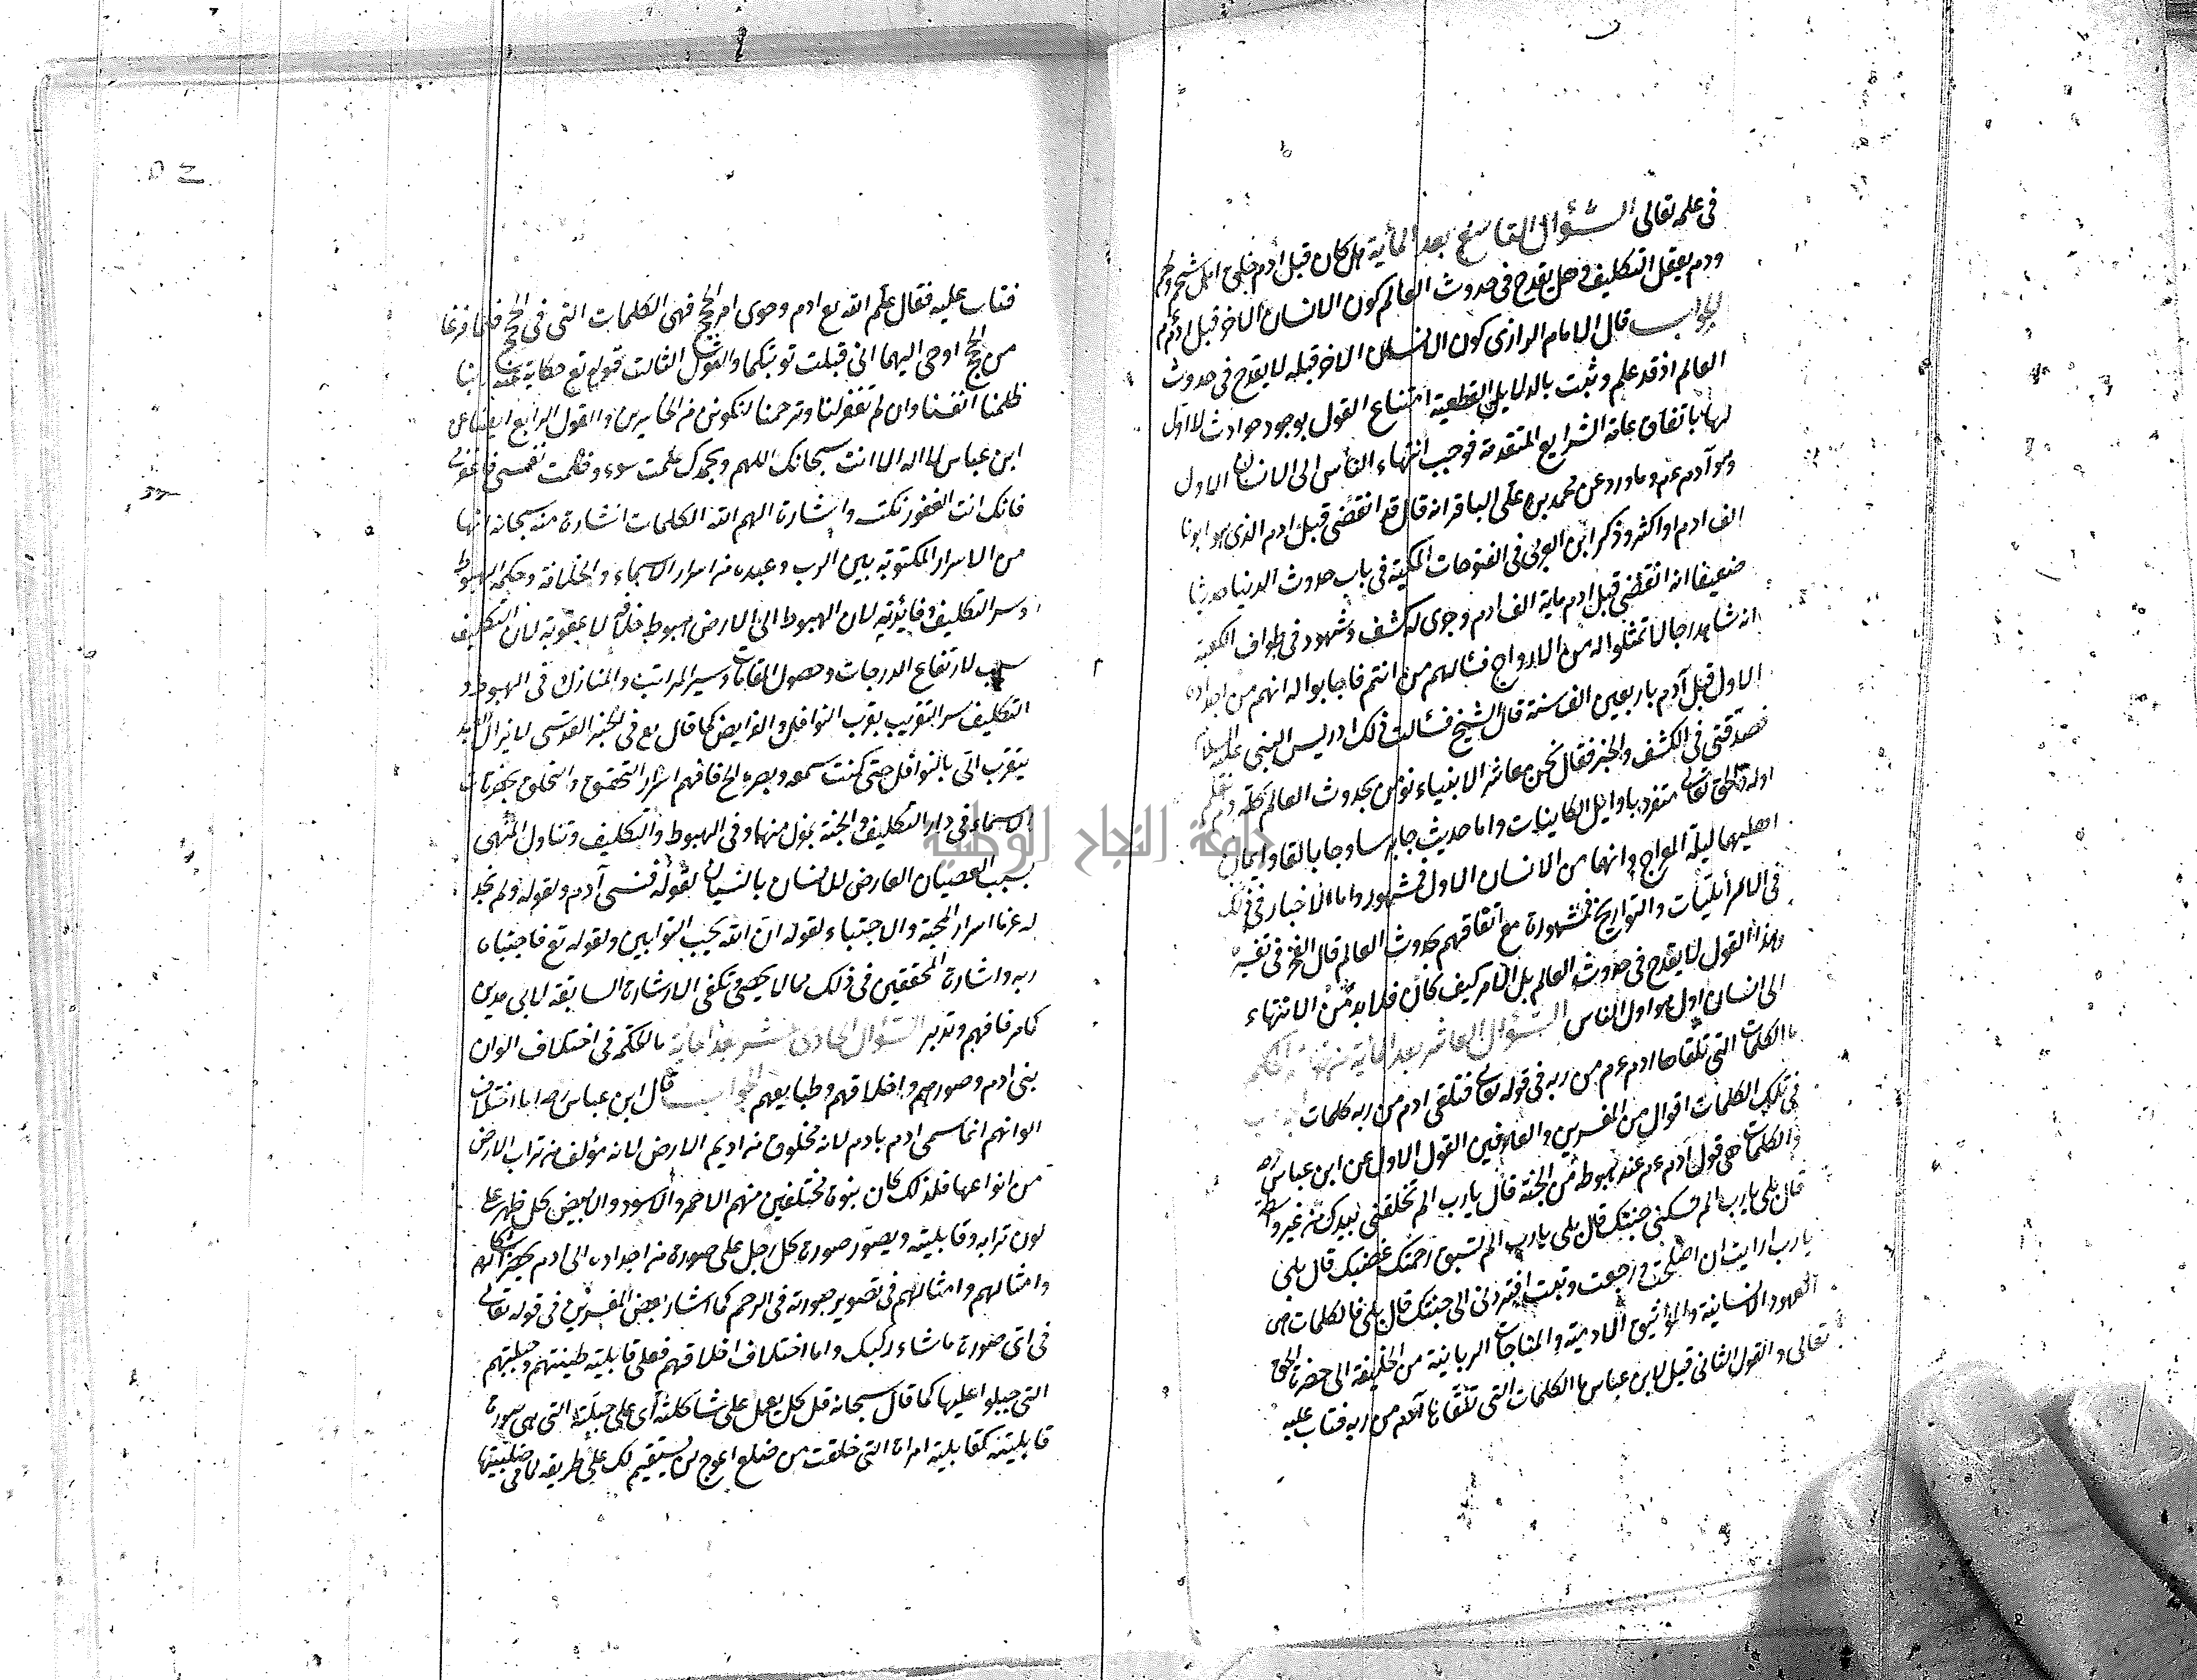 في علمه تعالى السؤال التاسع بعد المأية هل كان قبل ادم خلق اكل شحم ولحم
ودم يعقل التكليف وهل يقدح في حدوث العالم كون الانسان الاخر قبل ادم ءم
الجواب قال الامام الرازى كون الانسان الاخر قبله لا يقدح في حدوث
العالم اذ قد علم وثبت بالدلايل القطعية امتناع القول بوجود حوادث لا اول
لها باتفاق عامة الشرايع المتقدمة فوجب انتهاء الناس الى الانسان الاول
وهو آدم ءم وما ورد عن محمد بن على الباقر انه قال قد انقضى قبل ادم الذى هو ابونا
الف ادم او اكثر وذكر ابن العربى في الفتوحات المكية في باب حدوث الدنيا حديثا
ضعيفا انه انقضى قبل ادم ماية الف ادم وجرى له كشف وشهود في طواف الكعبة
انه شاهد رجالا تمثلوا له من الارواح فسألهم من انتم فاجابوا له انهم من اجداده
الاول قبل آدم باربعين الف سنة قال الشيخ فسألت ذلك ادريس النبى عليه السلام
فصدقنى في الكشف والخبر فقال نحن معاشر الانبياء نؤمن بحدوث العالم كله ولم نعلم
اوله والحق تعالى متفرد باوايل الكاينات واما حديث جابرسا وجابالقا وايمان
اهليهما ليلة المعراج وانهما من الانسان الاول فمشهور واما الاخبار في ذلك
في الاسرائيليات والتواريخ فمشهورة مع اتفاقهم بحدوث العالم قال الفخر في تفسيره
وهذا القول لا يقدح في حدوث العالم بل الامر كيف كان فلا بد من الانتهاء
الى انسان اول هو اول الناس السؤال العاشر بعد المأية
ما الكلمات التى تلقاها ادم ءم من ربه في قوله تعالى فتلقى ادم من ربه كلمات
في تلك الكلمات اقوال من المفسرين والعارفين القول الاول عن ابن عباس رضه
والكلمات هى قول آدم ءم عند هبوطه من الجنة قال يا رب الم تخلقنى بيدك من غير واسطة
قال بلى يا رب الم تسكنى جنتك قال بلى يا رب الم تسبق رحمتك غضبك قال بلى
يا رب ارايت ان اصلحت ورجعت وتبت افتردنى الى جنتك قال بلى فالكلمات هى
العهود الانسانية والمواثيق الادمية والمناجات الربانية من الخليفة الى حضرة الحق
تعالى والقول الثانى قيل لابن عباس ما الكلمات التى تلقاها آدم من ربه فتاب عليه
فتاب عليه فقال علم الله تع ادم وحوى امر الحج فهى الكلمات التى في الحج فلما فرغا
من الحج اوحى اليهما انى قبلت توبتكما والقول الثالث قوله تع حكاية عنه ربنا
ظلمنا انفسنا وان لم تغفر لنا وترحمنا لنكونن من الخاسرين والقول الرابع ايضا عن
ابن عباس لا اله الا انت سبحانك اللهم وبحمدك عملت سوء وظلمت نفسى فاغفرلى
فانك انت الغفور نكت واشارة الهم الله الكلمات اشارة منه سبحانه انها
من الاسرار المكتوبة بين الرب وعبده من اسرار الاسماء والخلافة وحكمة الهبوط
وسر التكليف وفائدته لان الهبوط الى الارض هبوط خلافة لا عقوبة لان التكليف
سبب لارتفاع الدرجات وحصول المقامات وسير المراتب والمنازل في الهبوط و
التكليف سر التقريب بقرب النوافل والفرايض كما قال تع في الخبر القدسى لا يزال العبد
يتقرب الى بالنوافل حتى كنت سمعه وبصره الخ فافهم اسرار التحقق والتخلق بحضرات
الاسماء في دار التكليف والجنة بمعزل منها وفى الهبوط والتكليف وتناول المنهى
بسبب العصيان العارض للانسان بالنسيان لقوله فنسى آدم ولقوله ولم نجد
له عزما اسرار المحبة والاجتباء لقوله ان الله يحب التوابين ولقوله تع فاجتباه
ربه واشارة المحققين في ذلك مما لا يحصى وتكفى الاشارة السابقة لابى مدين
كما مر فافهم وتدبر السؤال الحادى عشر بعد المأية ما الحكمة في اختلاف الوان
بنى ادم وصورهم واخلاقهم وطبايعهم الجواب قال ابن عباس رضه اما اختلاف
الوانهم انما سمى ادم بادم لانه مخلوق من اديم الارض لانه مؤلف من تراب الارض
من انواعها فلذلك كان بنوه مختلفين منهم الاحمر والاسود والابيض كل ظهر على
لون ترابه وقابليته ويصور صورة كل رجل على صورة من اجداده الى ادم يحضر اشكالهم
وامثالهم وامثالهم في تصوير صورته في الرحم كما اشار بعض المفسرين في قوله تعالى
في اى صورة ما شاء ركبك واما اختلاف اخلاقهم فعلى قابلية طينتهم وجبلتهم
التى جبلوا عليها كما قال سبحانه قل كل يعمل على شاكلته أى على جبلته التى هى صورة
قابليته كقابلية امراة التى خلقت من ضلع اعوج لن يستقيم لك على طريقة لما في
جامعة النجاح الوطنية